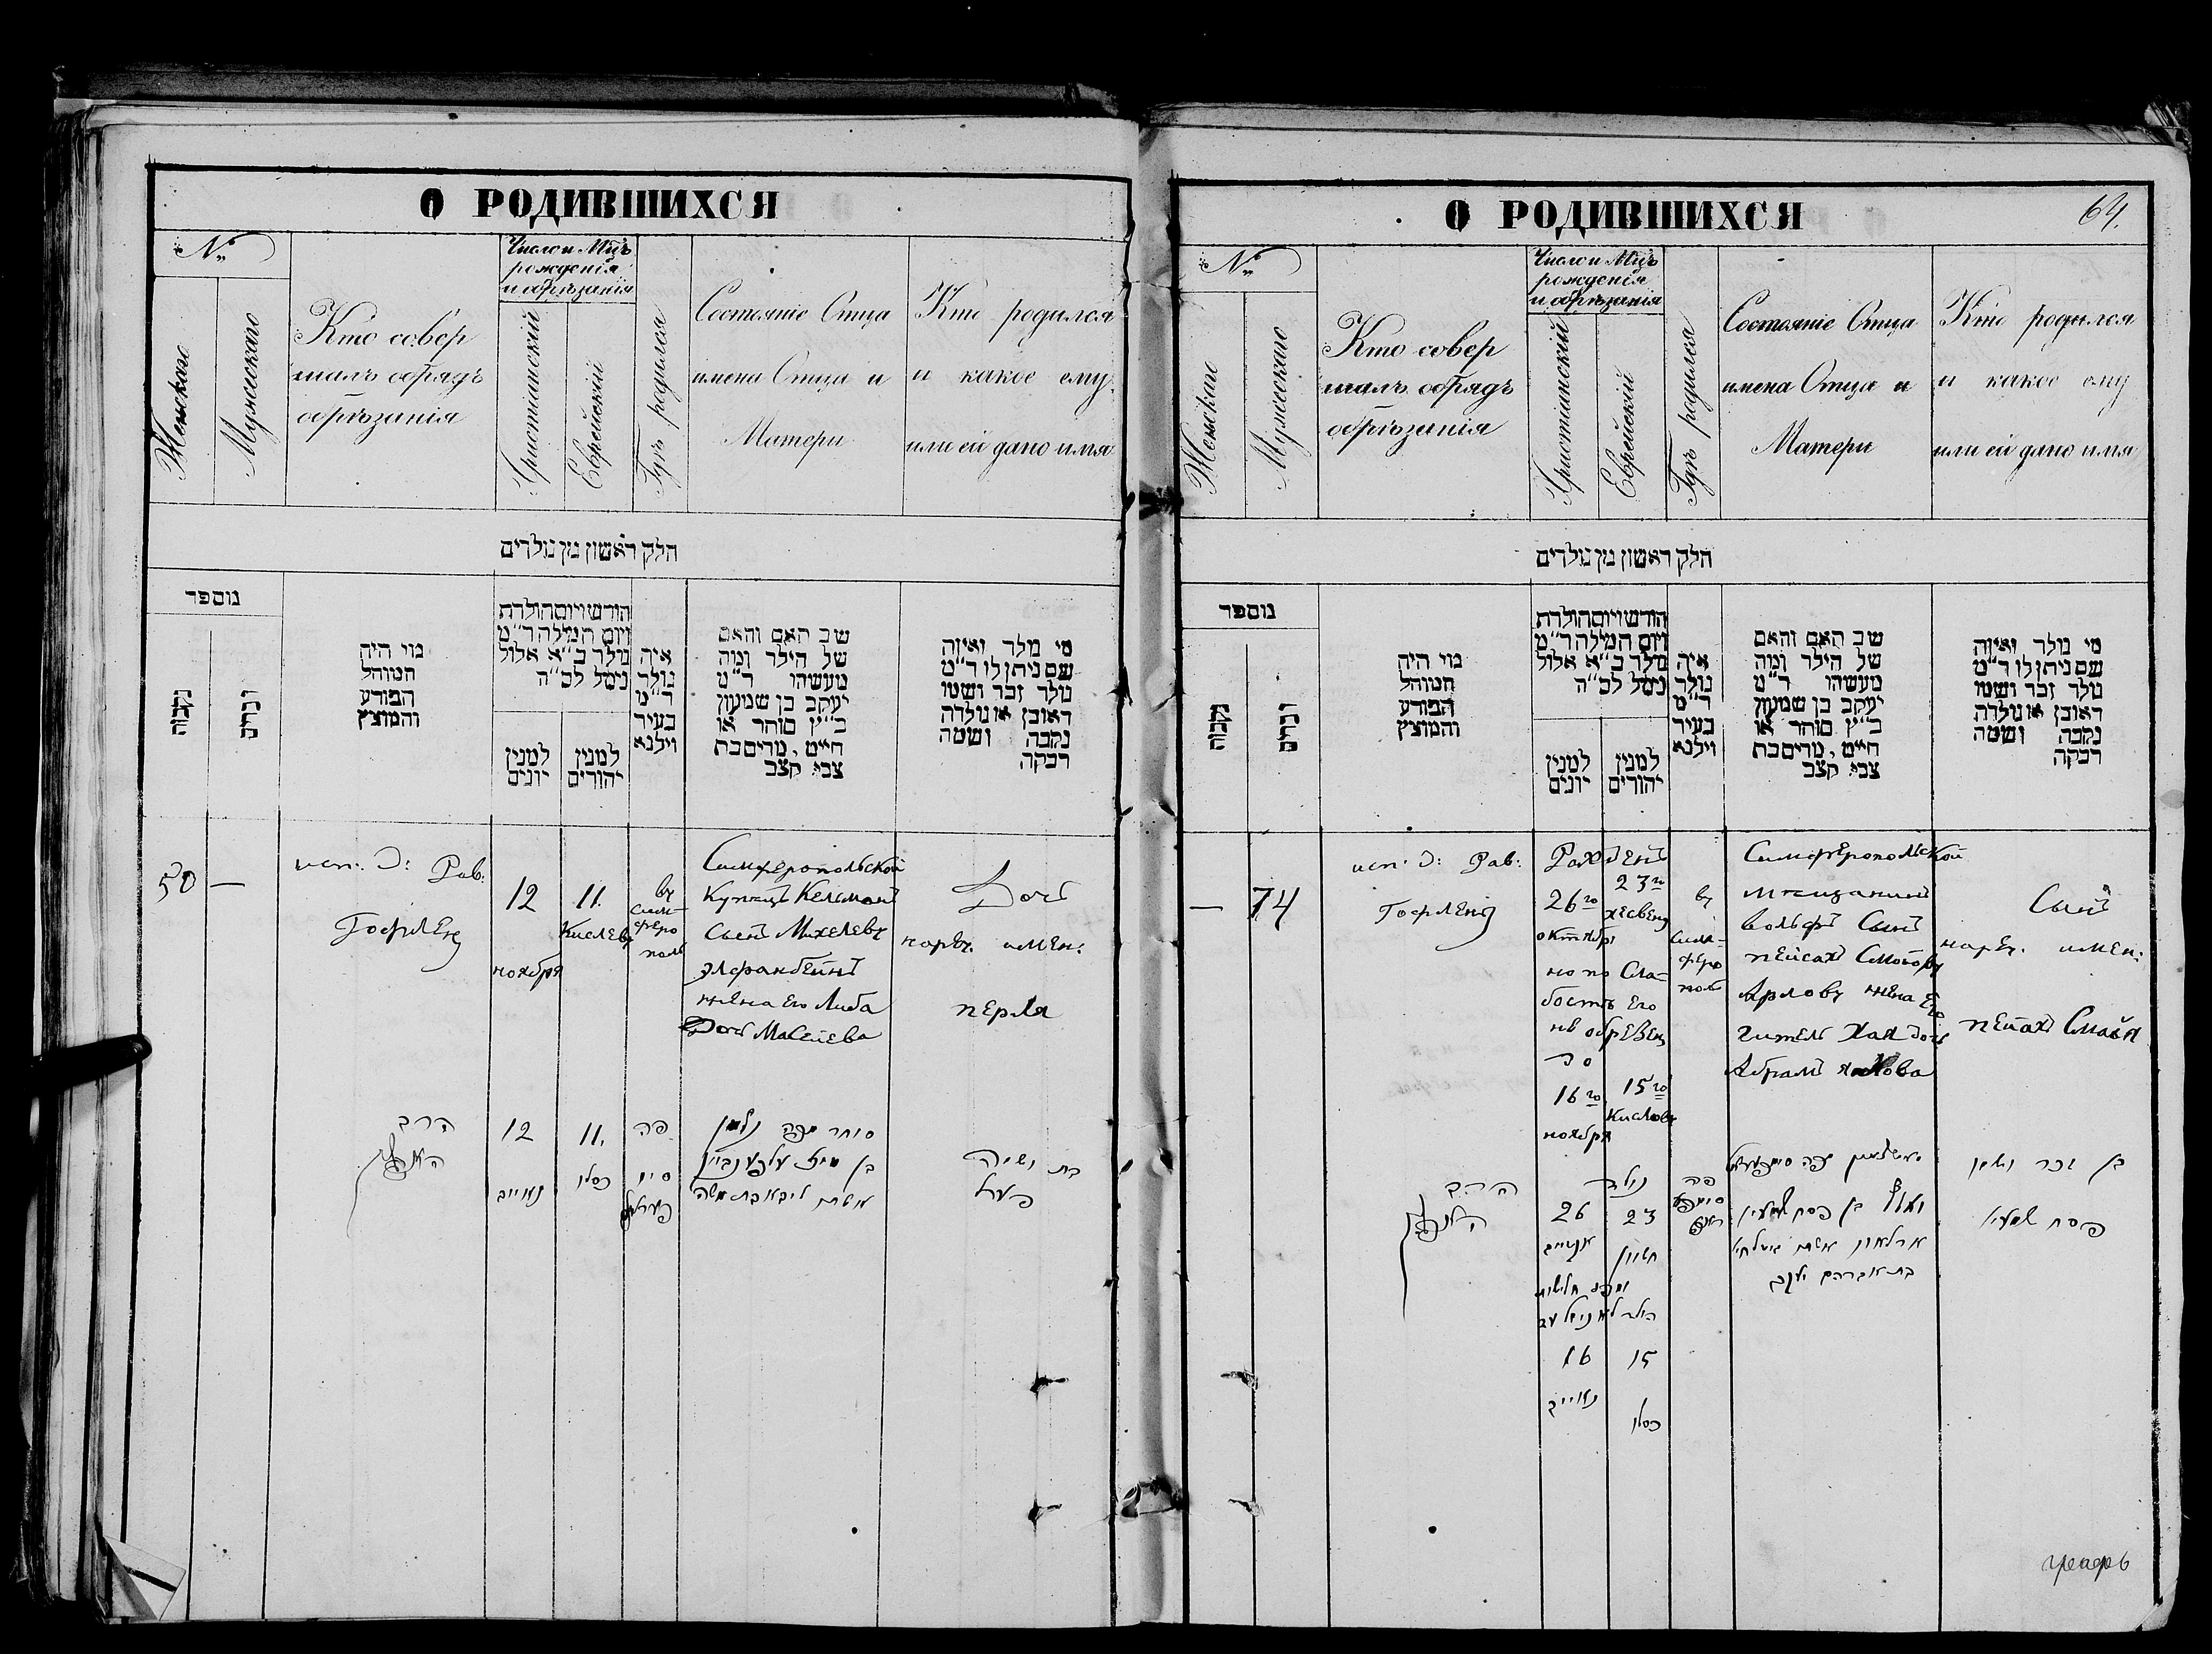 О РОДИВШИХСЯ
№
Женскаго
Мужескаго
Кто совер
шалъ обрядъ
обрѣзанія
Число и Мцъ
рожденія
и обрѣзанія
Христіанскій
Еврейскій
Гдѣ родился
Состояніе Отца
имена Отца и
Матери
Кто родился
и какое ему
или ей дано имя
חלק ראשון מן נולדים
נוספר
נקבות
זכרים
מוי היה
המוהל
הפורע
והמוצץ
הודש ויום הולדת
ויום המילה ד״מ
נולד ב״א אלול
נימל לב״ה
למנין
יונים
למנין
יהודים
איה
נולד
ד״מ
בעיר
ווילנא
שב האם והאם
של הילד ומה
מעשהו ד״מ
יעקב בן שמעון
כ״ץ סוחר או
חייט, מרים בת
צבי קצב
מי נולד ואיזה
שם ניתן לו ד״מ
נולד זכר ושמו
ראובן או נולדה
נקבה ושמה
רבקה
50
—
исп: Д: Рав:
Гофленд
12
ноября
11.
Кислевъ
въ
Сим-
феро
поль
Симферопольской
Купецъ Кельманъ
Сынъ Михелевъ
Элфанбейнъ
жена его Либа
Дочь Мовсиева
Дочь
нареч. имен:
перля
הרב
12
נאייב
11.
כסלו
פה
סימ
סוחר מפה קלמן
בת ושמה
פערל
О РОДИВШИХСЯ
64.
№
Женскаго
Мужескаго
Кто совер
шалъ обрядъ
обрѣзанія
Число и Мцъ
рожденія
и обрѣзанія
Христіанскій
Еврейскій
Гдѣ родился
Состояніе Отца
имена Отца и
Матери
Кто родился
и какое ему
или ей дано имя
חלק ראשון מן נולדים
נוספר
נקבות
זכרים
מוי היה
המוהל
הפורע
והמוצץ
הודש ויום הולדת
ויום המילה ד״מ
נולד ב״א אלול
נימל לב״ה
למנין
יונים
למנין
יהודים
איה
נולד
ד״מ
בעיר
ווילנא
שב האם והאם
של הילד ומה
מעשהו ד״מ
יעקב בן שמעון
כ״ץ סוחר או
חייט, מרים בת
צבי קצב
מי נולד ואיזה
שם ניתן לו ד״מ
נולד זכר ושמו
ראובן או נולדה
נקבה ושמה
רבקה
—
74
исп: Д: Рав:
Гофленд
Рожденъ
26го
октябр
23го
хесвенд
но по Сла-
бость его
не обрезенъ
до
16го
ноября
15го
Кислевъ
въ
Сим-
феро
поль
Симферопольской
мещанинъ
вольфъ Сынъ
пейсахъ
жена Его
Гитель Хая дочь
Абрамъ
Сынъ
нареч. имен:
пейсахъ
הרב
נולד
26
23
חשון
16
נאייב
15
כסלו
פה
בן פסח שמעון
בת אברהם יעקב
בן זכר ושמו
פסח שמעון